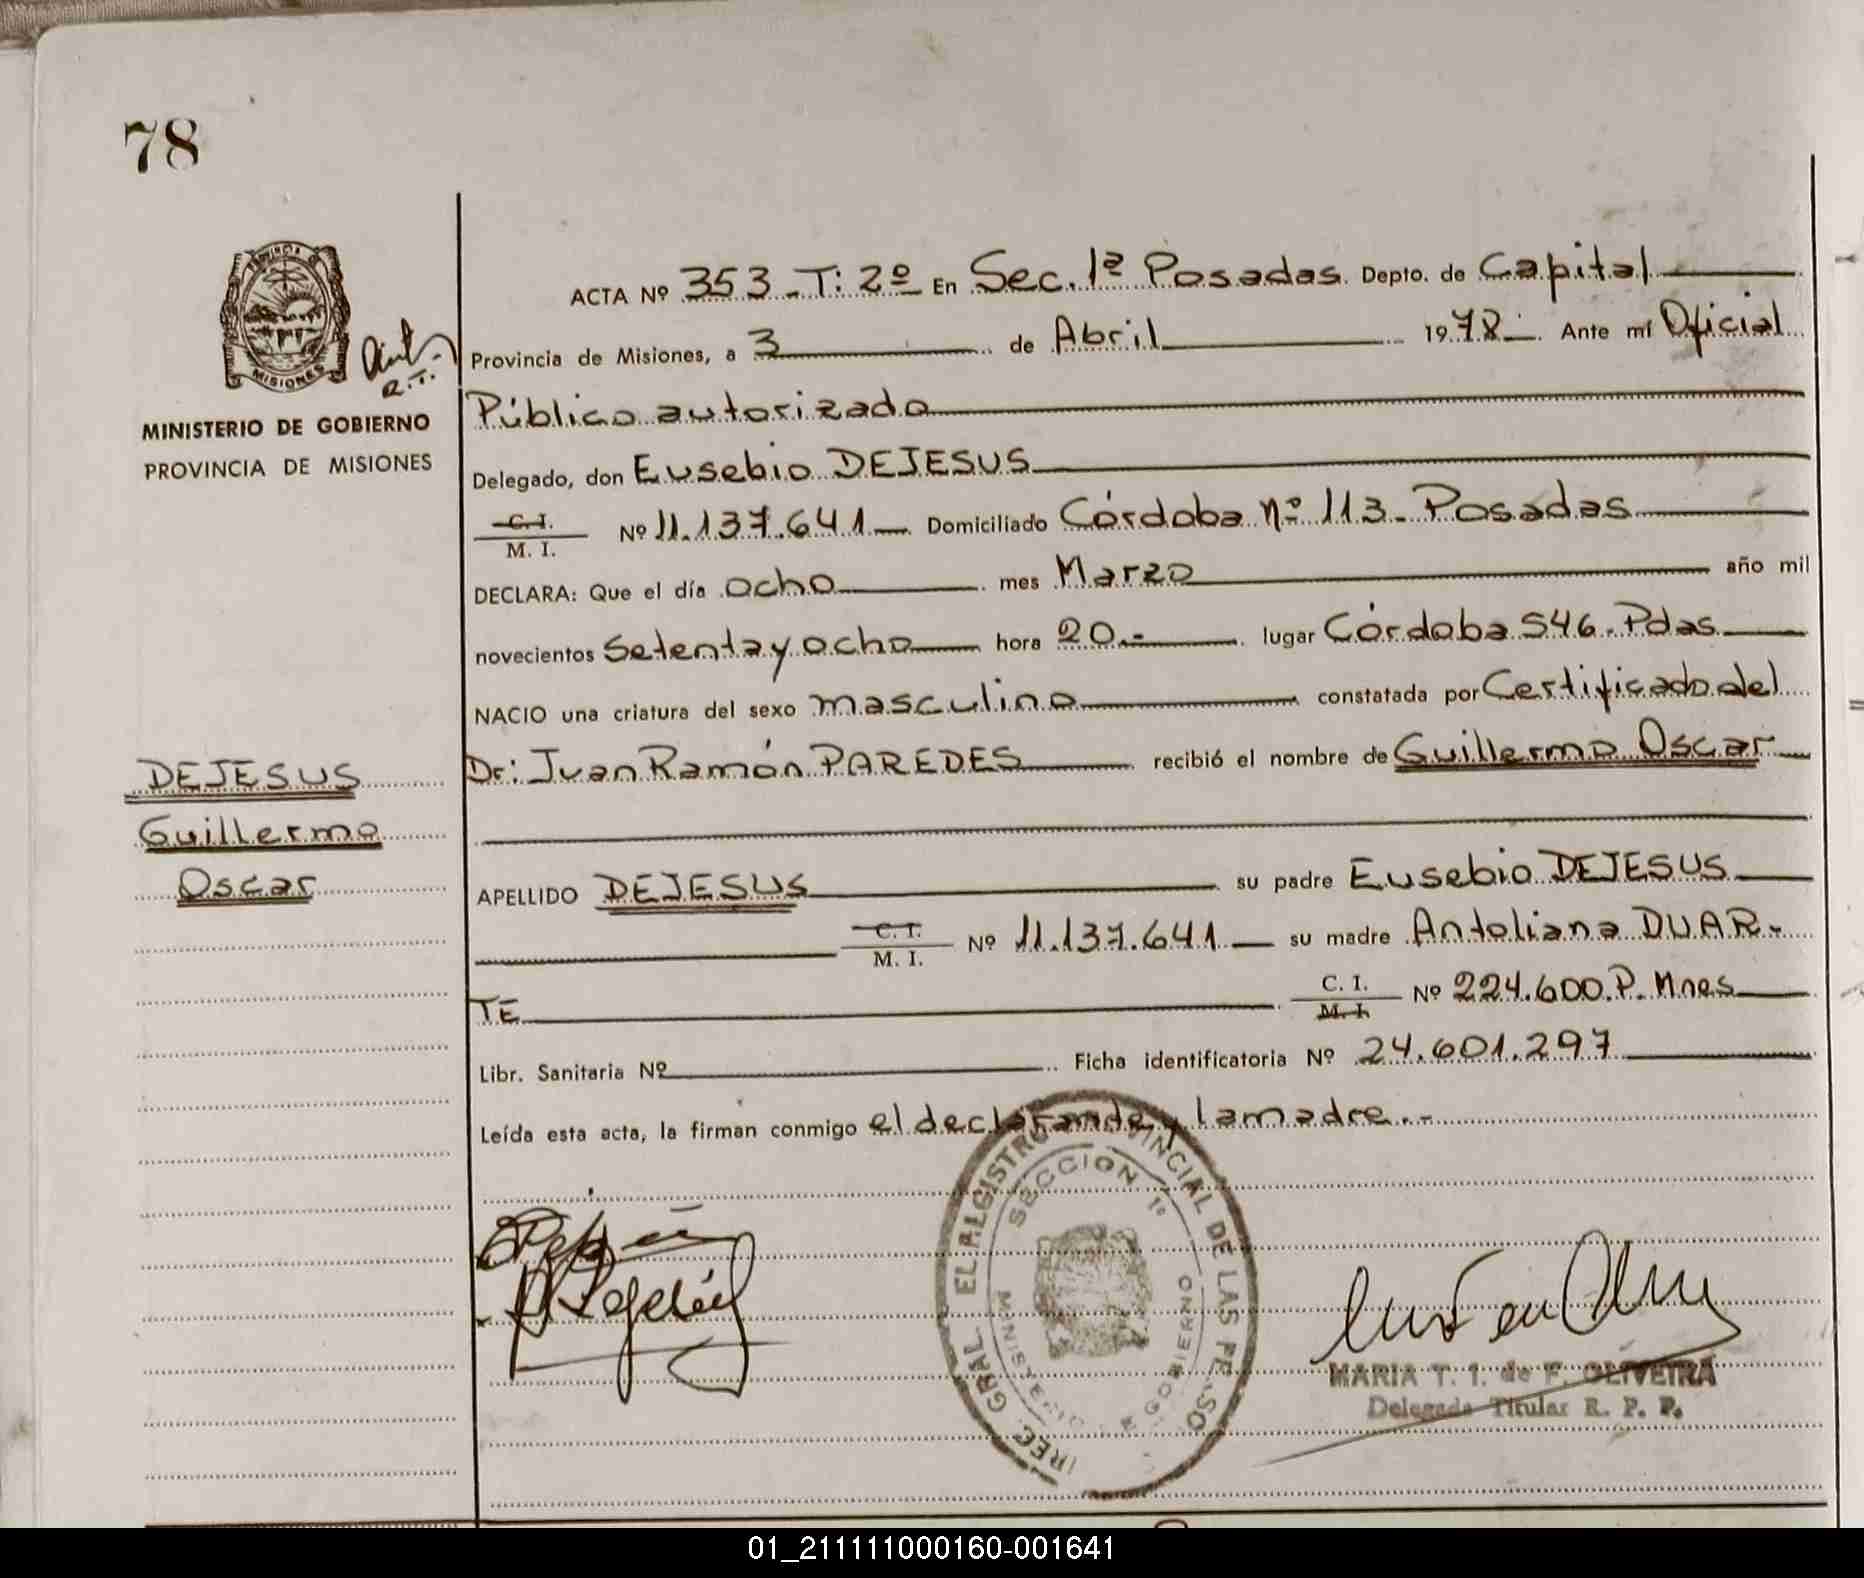 78
ACTA Nº 353 - T: 2º En Sec. 1ª Posadas. Depto. de Capital
Provincia de Misiones, a 3 de Abril 1978.- Ante mí Oficial
Público autorizado
MINISTERIO DE GOBIERNO
PROVINCIA DE MISIONES
MISIONES
R.T.
Delegado, don Eusebio DEJESUS
C. I.
M. I. Nº 11.137.641 Domiciliado Córdoba nº 113 - Posadas
DECLARA: Que el día ocho mes Marzo año mil
novecientos setenta y ocho hora 20.- lugar Córdoba 546. Pdas
NACIO una criatura del sexo masculino constatada por Certificado del
Dr: Juan Ramón PAREDES recibió el nombre de Guillermo Oscar
DEJESUS
Guillermo
Oscar
APELLIDO DEJESUS su padre Eusebio DEJESUS
C. I.
M. I. Nº 11.137.641 su madre Antoliana DUAR-
TE C. I.
M. I. Nº 224.600 P. Mnes
Libr. Sanitaria Nº Ficha identificatoria Nº 24.601.297
Leída esta acta, la firman conmigo el declarande y la madre.-
DIREC. GRAL. DEL REGISTRO PROVINCIAL DE LAS PERSO
SECCION 1ª
MINISTERIO DE GOBIERNO
MARIA T. I. de F. OLIVEIRA
Delegada Titular R. P. P.
01_211111000160-001641